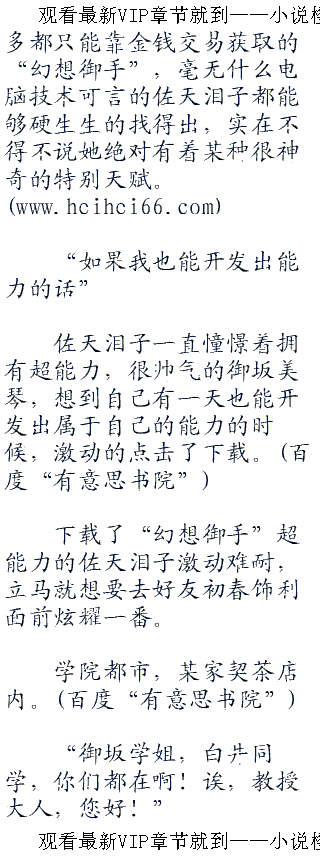 观看最新VIP章节就到——小说检
多都只能靠金钱交易获取的
“幻想御手”，毫无什么电
脑技术可言的佐天泪子都能
够硬生生的找得出，实在不
得不说她绝对有着某种很神
奇的特别天赋。
(www.hcihci66.com)
“如果我也能开发出能
力的话”
佐天泪子一直憧憬着拥
有超能力，很帅气的御坂美
琴，想到自己有一天也能开
发出属于自己的能力的时
候，激动的点击了下载。(百
度“有意思书院”)
下载了“幻想御手”超
能力的佐天泪子激动难耐，
立马就想要去好友初春饰利
面前炫耀一番。
学院都市，某家契茶店
内。(百度“有意思书院”)
“御坂学姐，白井同
学，你们都在啊！诶，教授
大人，您好！”
观看最新VIP章节就到——小说检